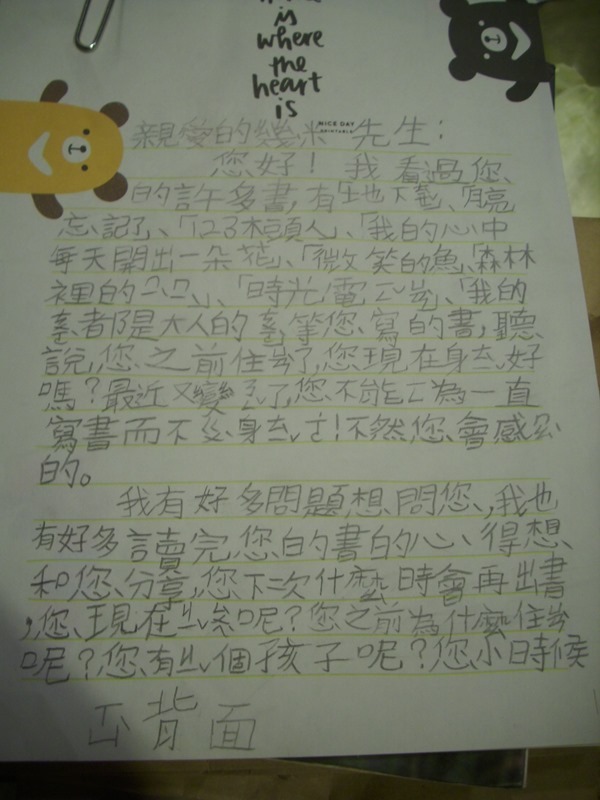 is
where
the
heart
is
NICE DAY
親愛的幾米 先生：
您好！我看過您
的許多書，有地下、「月亮
忘記了、「123木頭人、「我的心中
每天開出一朵花」、「微笑的魚」、「森林
裡的」、「時光電」、「我的
都是大人的等您寫的書，聽
說，您之前住了，您現在身ㄊㄧˇ好
嗎？最近又變了，您不能ㄧㄣ為一直
寫書而不身ㄊㄧˇ！不然您會感
的。
我有好多問題想問您，我也
有好多讀完您的書的心得想
和您分享，您下次什麼時會再出書
，您現在ㄐㄧˇ歲呢？您之前為什麼住
呢？您有ㄐㄧˇ個孩子呢？您小時候
背面